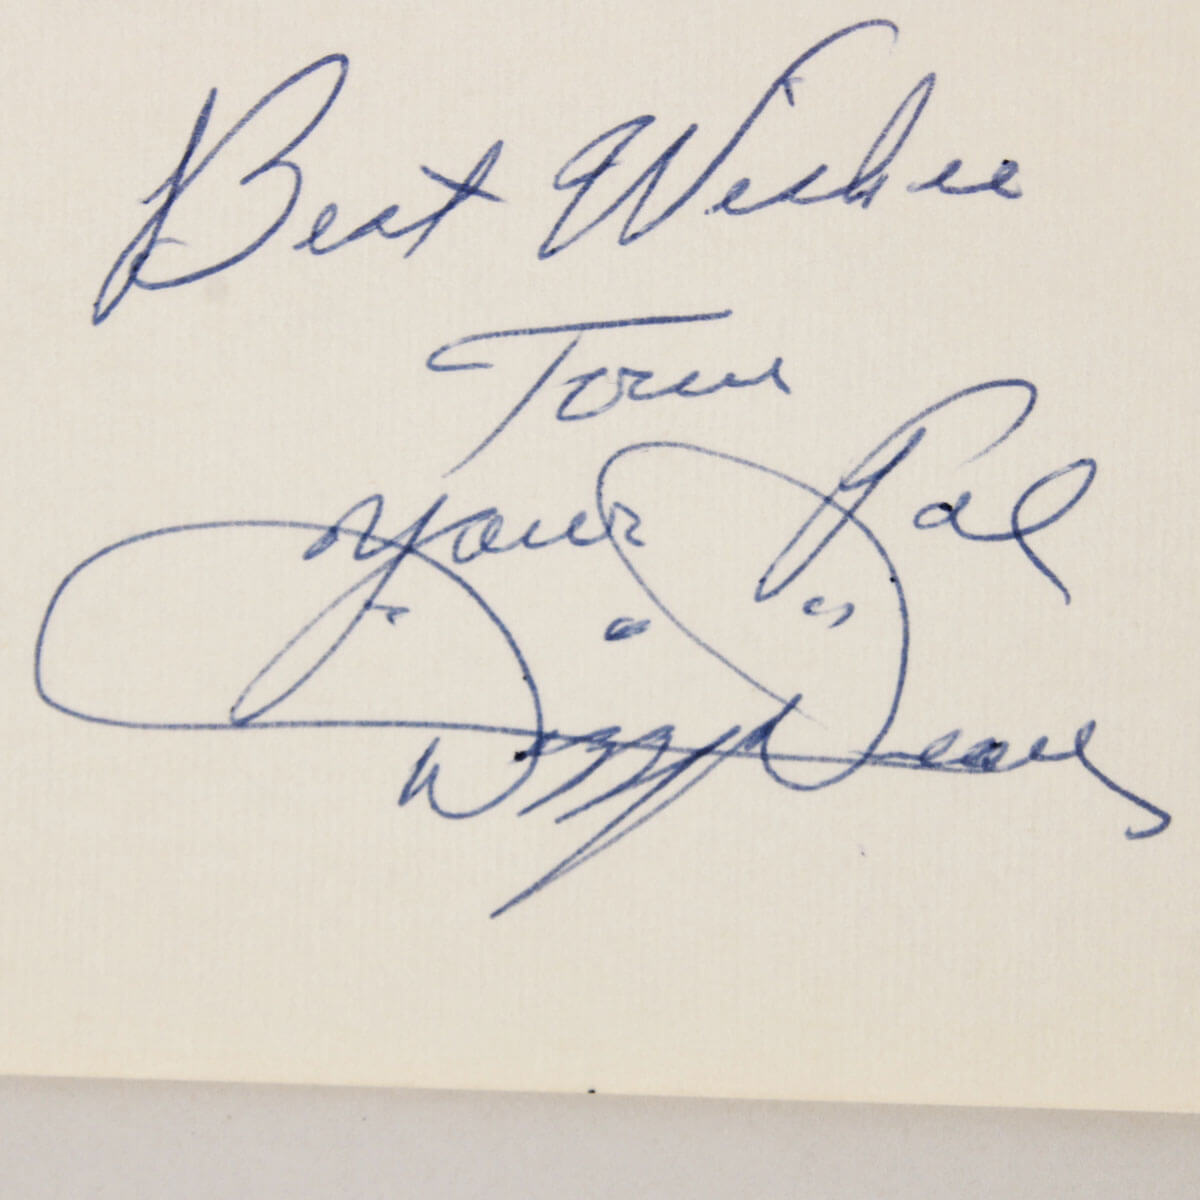 Best Wishes
Tom
Your Pal
Dizzy Dean